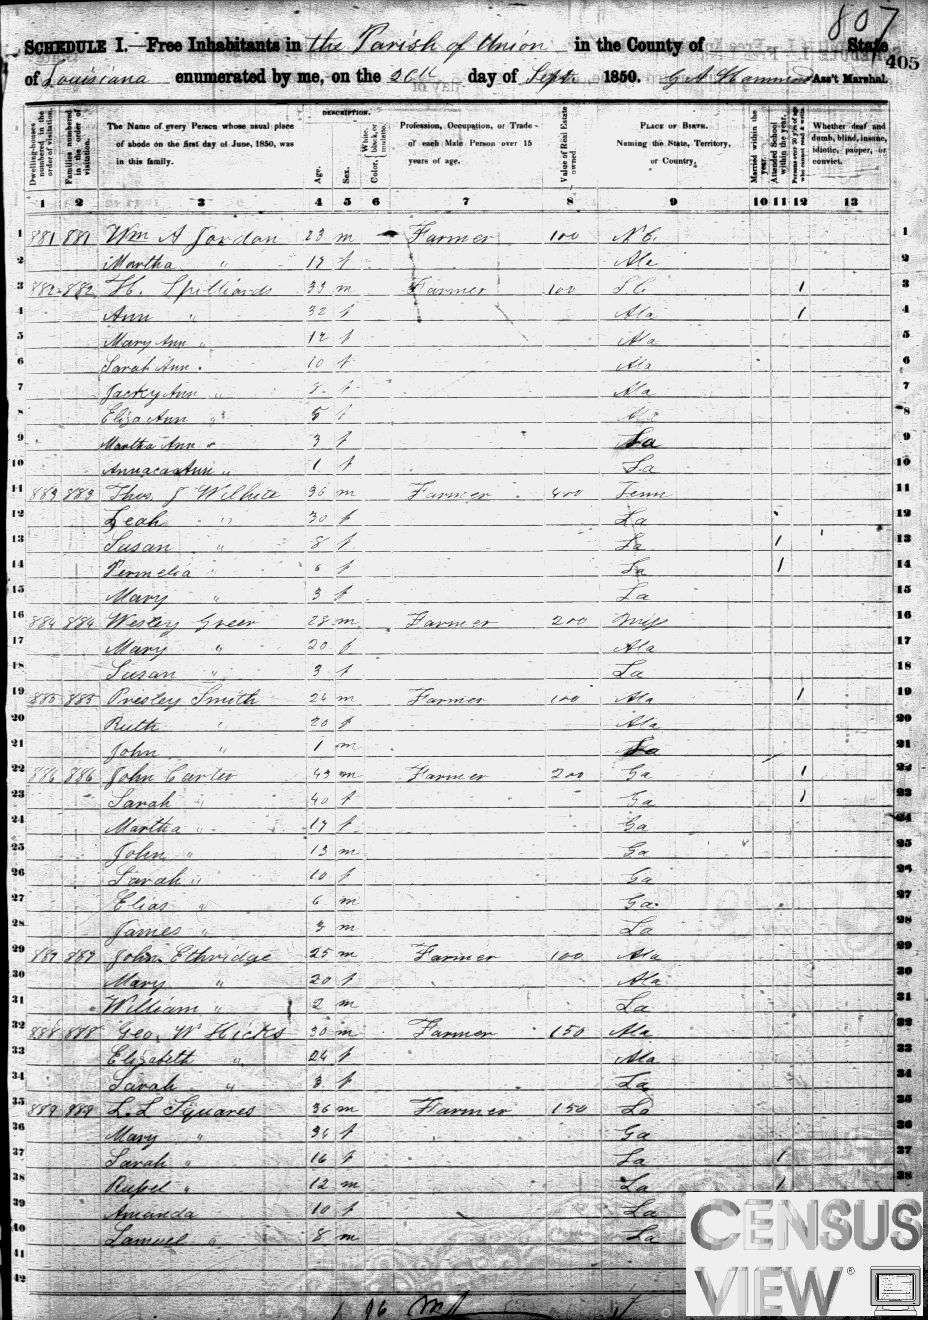 807
SCHEDULE I.—Free Inhabitants in the Parish of Union in the County of State
405
of Louisiana enumerated by me, on the 20th day of Sept 1850. Ass't Marshal.
DESCRIPTION.
Dwelling-houses numbered in the order of visitation.
Families numbered in the order of visitation.
The Name of every Person whose usual place of abode on the first day of June, 1850, was in this family.
Age.
Sex.
Color, White, black, or mulatto.
Profession, Occupation, or Trade of each Male Person over 15 years of age.
Value of Real Estate owned.
PLACE OF BIRTH. Naming the State, Territory, or Country.
Married within the year.
Attended School within the year.
Persons over 20 y'rs of age who cannot read & write.
Whether deaf and dumb, blind, insane, idiotic, pauper, or convict.
1 2 3 4 5 6 7 8 9 10 11 12 13
1 881 881 Wm A Jordan 23 m Farmer 100 N C. 1
2 Martha " 17 f Ala 2
3 882 882 H. Spilliards 39 m Farmer 100 S C 1 3
4 Ann " 32 f Ala 1 4
5 Mary Ann " 12 f Ala 5
6 Sarah Ann " 10 f Ala 6
7 Jacky Ann " 8 f Ala 7
8 Eliza Ann " 5 f Ala 8
9 Martha Ann " 3 f La 9
10 Ann " 1 f La 10
11 883 883 Thos. J Wilhite 36 m Farmer 400 Tenn 11
12 Leah " 30 f La 12
13 Susan " 8 f La 1 13
14 Permelia " 6 f La 1 14
15 Mary " 3 f La 15
16 884 884 Wesley Greer 28 m Farmer 200 Miss 16
17 Mary " 20 f Ala 17
18 Susan " 3 f La 18
19 885 885 Presley Smith 24 m Farmer 100 Ala 1 19
20 Ruth " 20 f Ala 20
21 John " 1 m La 21
22 886 886 John Carter 43 m Farmer 200 Ga 1 22
23 Sarah " 40 f Ga 1 23
24 Martha " 17 f Ga 24
25 John " 13 m Ga 25
26 Sarah " 10 f Ga 26
27 Elias " 6 m Ga 27
28 James " 3 m La 28
29 887 887 John Ethridge 25 m Farmer 100 Ala 29
30 Mary " 20 f Ala 30
31 William " 2 m La 31
32 888 888 Geo. W Hicks 30 m Farmer 150 Ala 32
33 Elizabeth " 24 f Ala 33
34 Sarah " 3 f La 34
35 889 889 L. L Squares 36 m Farmer 150 La 35
36 Mary " 34 f Ga 36
37 Sarah " 16 f La 1 37
38 Russel " 12 m La 1 38
39 Amanda 10 f La
40 Samuel " 8 m La
41
42
CENSUS
VIEW®